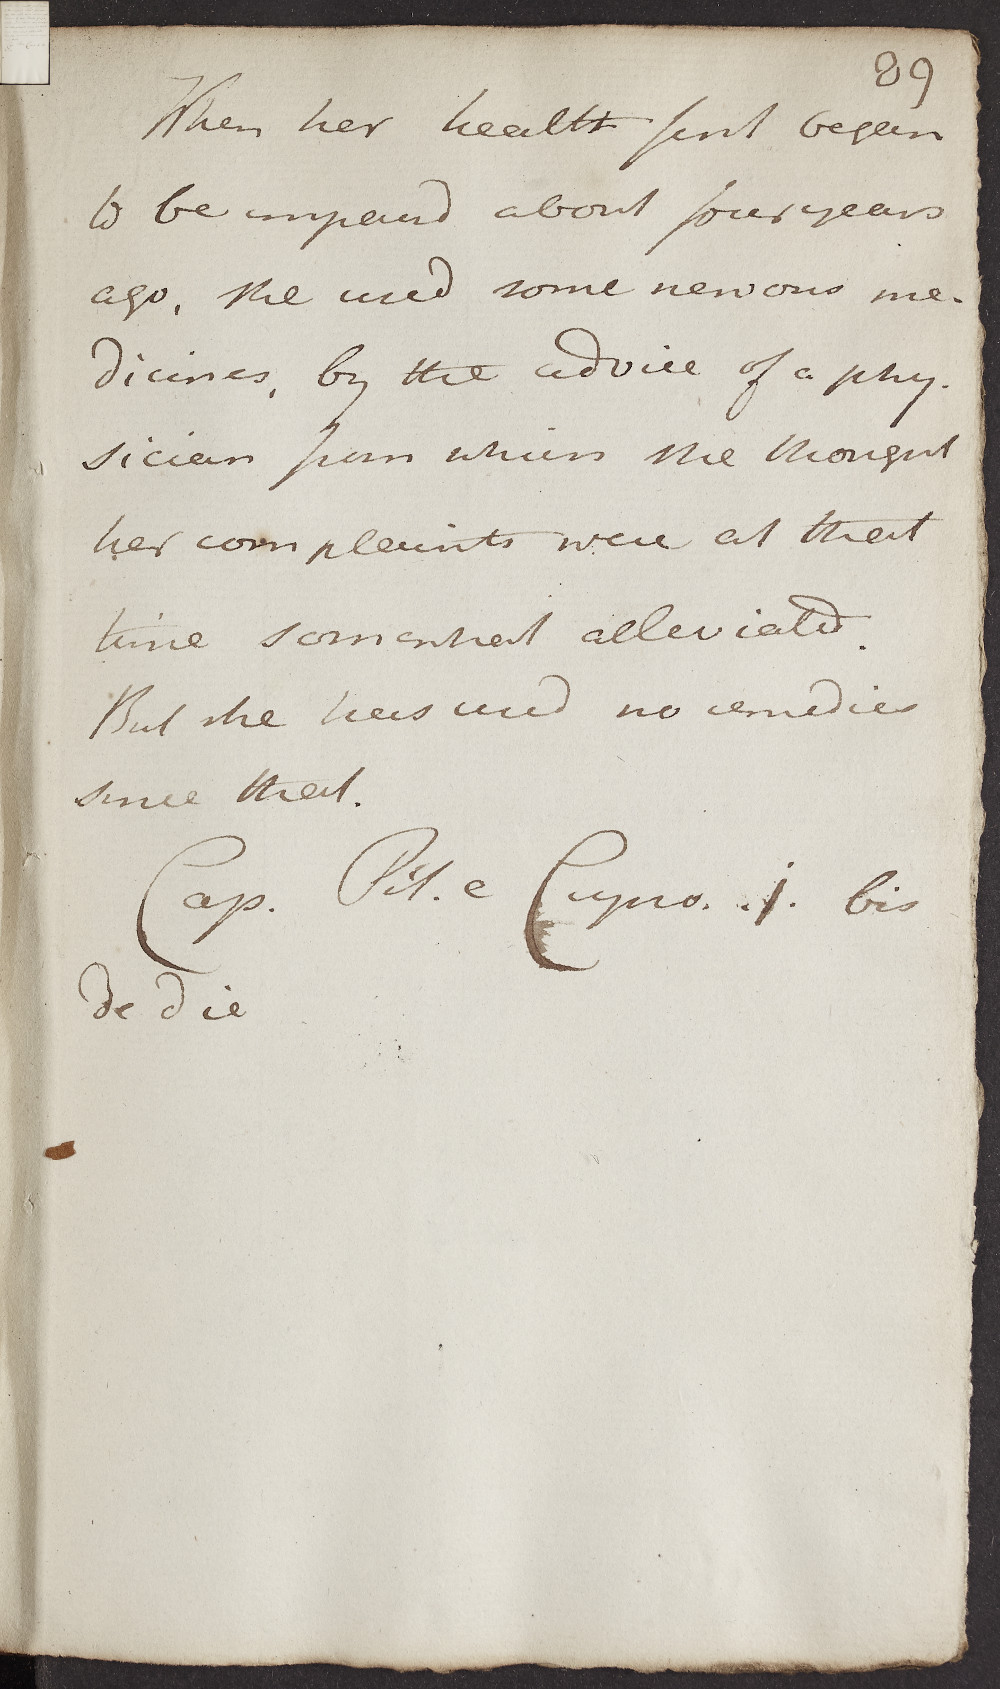 89
When her health first began
to be impaired about four years
ago, she used some nervous me-
dicines, by the advice of a phy-
sician from which she thought
her complaints were at that
time somewhat alleviated.
But she has used no remedies
since that.
Cap. Pil. e Cupro. .j. bis
de die